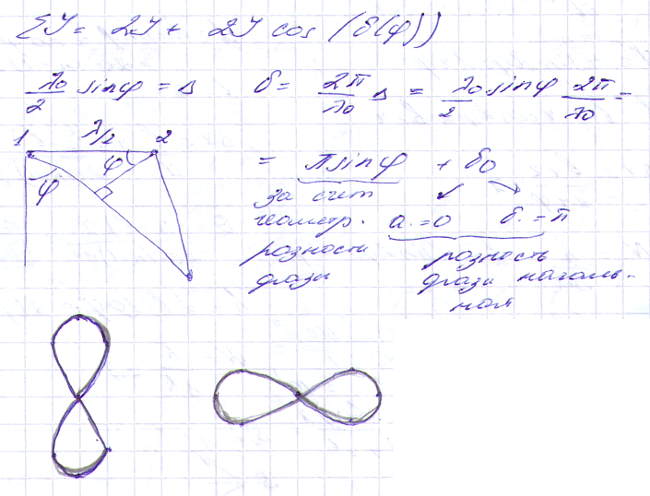 ΣI = 2I + 2I cos (δ(φ))
λ₀/2 sinφ = Δ δ = 2π/λ₀ Δ = λ₀/2 sinφ 2π/λ₀ =
1 λ/2 2
φ
φ
= π sinφ + δ₀
за счет
геометр. а.=0 б.=π
розности розность
фазы фазы началь-
ная